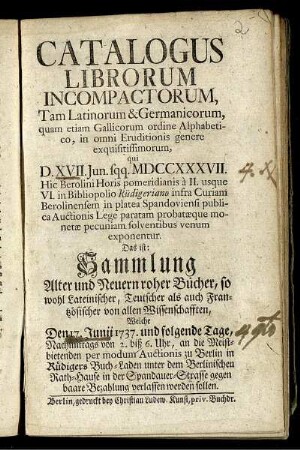 CATALOGUS
LIBRORUM
INCOMPACTORUM,
Tam Latinorum & Germanicorum,
quam etiam Gallicorum ordine Alphabeti-
co, in omni Eruditionis genere
exquisitissimorum,
qui
D. XVII. Jun. sqq. MDCCXXXVII.
Hic Berolini Horis pomeridianis à II. usque
VI. in Bibliopolio Rüdigeriano infra Curiam
Berolinensem in platea Spandoviensi publi-
ca Auctionis Lege paratam probatæque mo-
netæ pecuniam solventibus venum
exponentur.
Das ist:
Sammlung
Alter und Neuern roher Bücher, so
wohl Lateinischer, Teutscher als auch Fran-
tzösischer von allen Wissenschafften,
Welche
Den 17. Junii 1737. und folgende Tage,
Nachmittags von 2. biß 6. Uhr, an die Meist-
bietenden per modum Auctionis zu Berlin in
Rüdigers Buch-Laden unter dem Berlinischen
Rath-Hause in der Spandauer-Strasse gegen
baare Bezahlung verlassen werden sollen.
Berlin, gedruckt bey Christian Ludew. Kunst, priv. Buchdr.